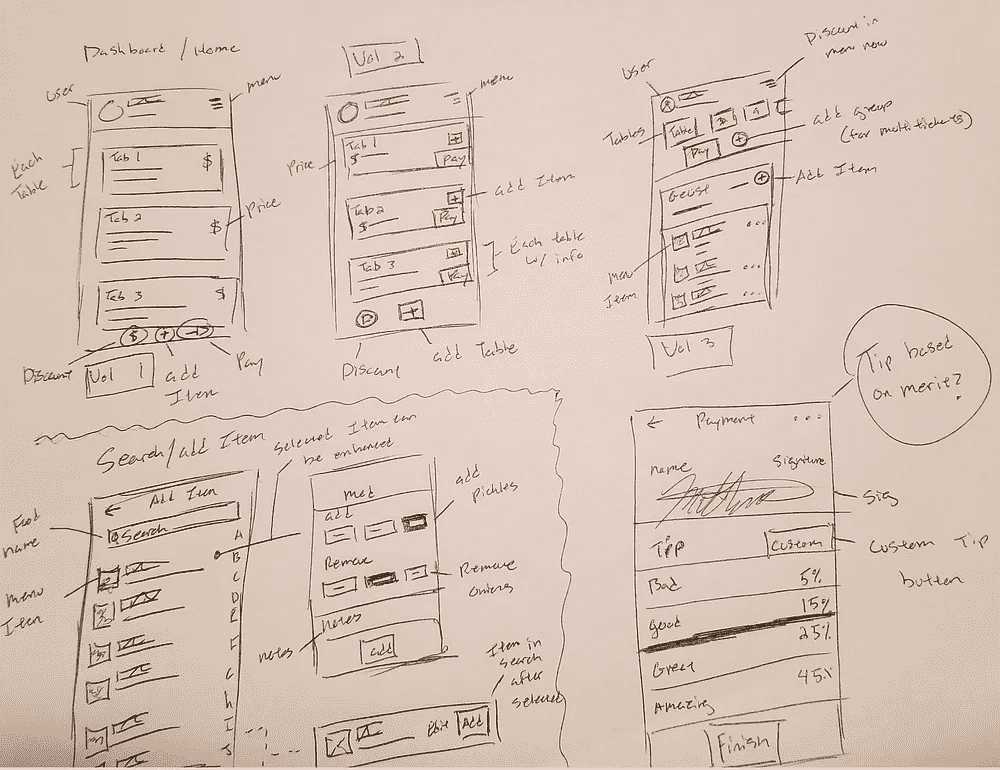 Dashboard / Home
User
menu
Each
Table
Tab 1
$
Tab 2
$
Price
Tab 3
$
$
+
Discount
Vol 1
add
Item
Pay
Vol 2
menu
Price
Tab 1
$
+
Pay
Tab 2
$
+
Pay
add Item
Tab 3
+
Pay
Each table
w/ info
D
+
Discount
add Table
Discount in
menu now
User
Tables
Table
+
Pay
add group
(for multi tickets)
+
Add Item
menu
Item
Vol 3
Search/add Item
Selected Item can
be enhanced
Add Item
Food
name
Search
menu
Item
A
B
C
D
E
F
G
h
I
J
mod
add
add
pickles
Remove
Remove
onions
notes
notes
add
Item in
search
after
selected
Edit
Add
Tip based
on merit?
Payment
name
Signature
Sig
Tip
Custom
Custom Tip
button
Bad
5%
Good
15%
25%
Great
45%
Amazing
Finish